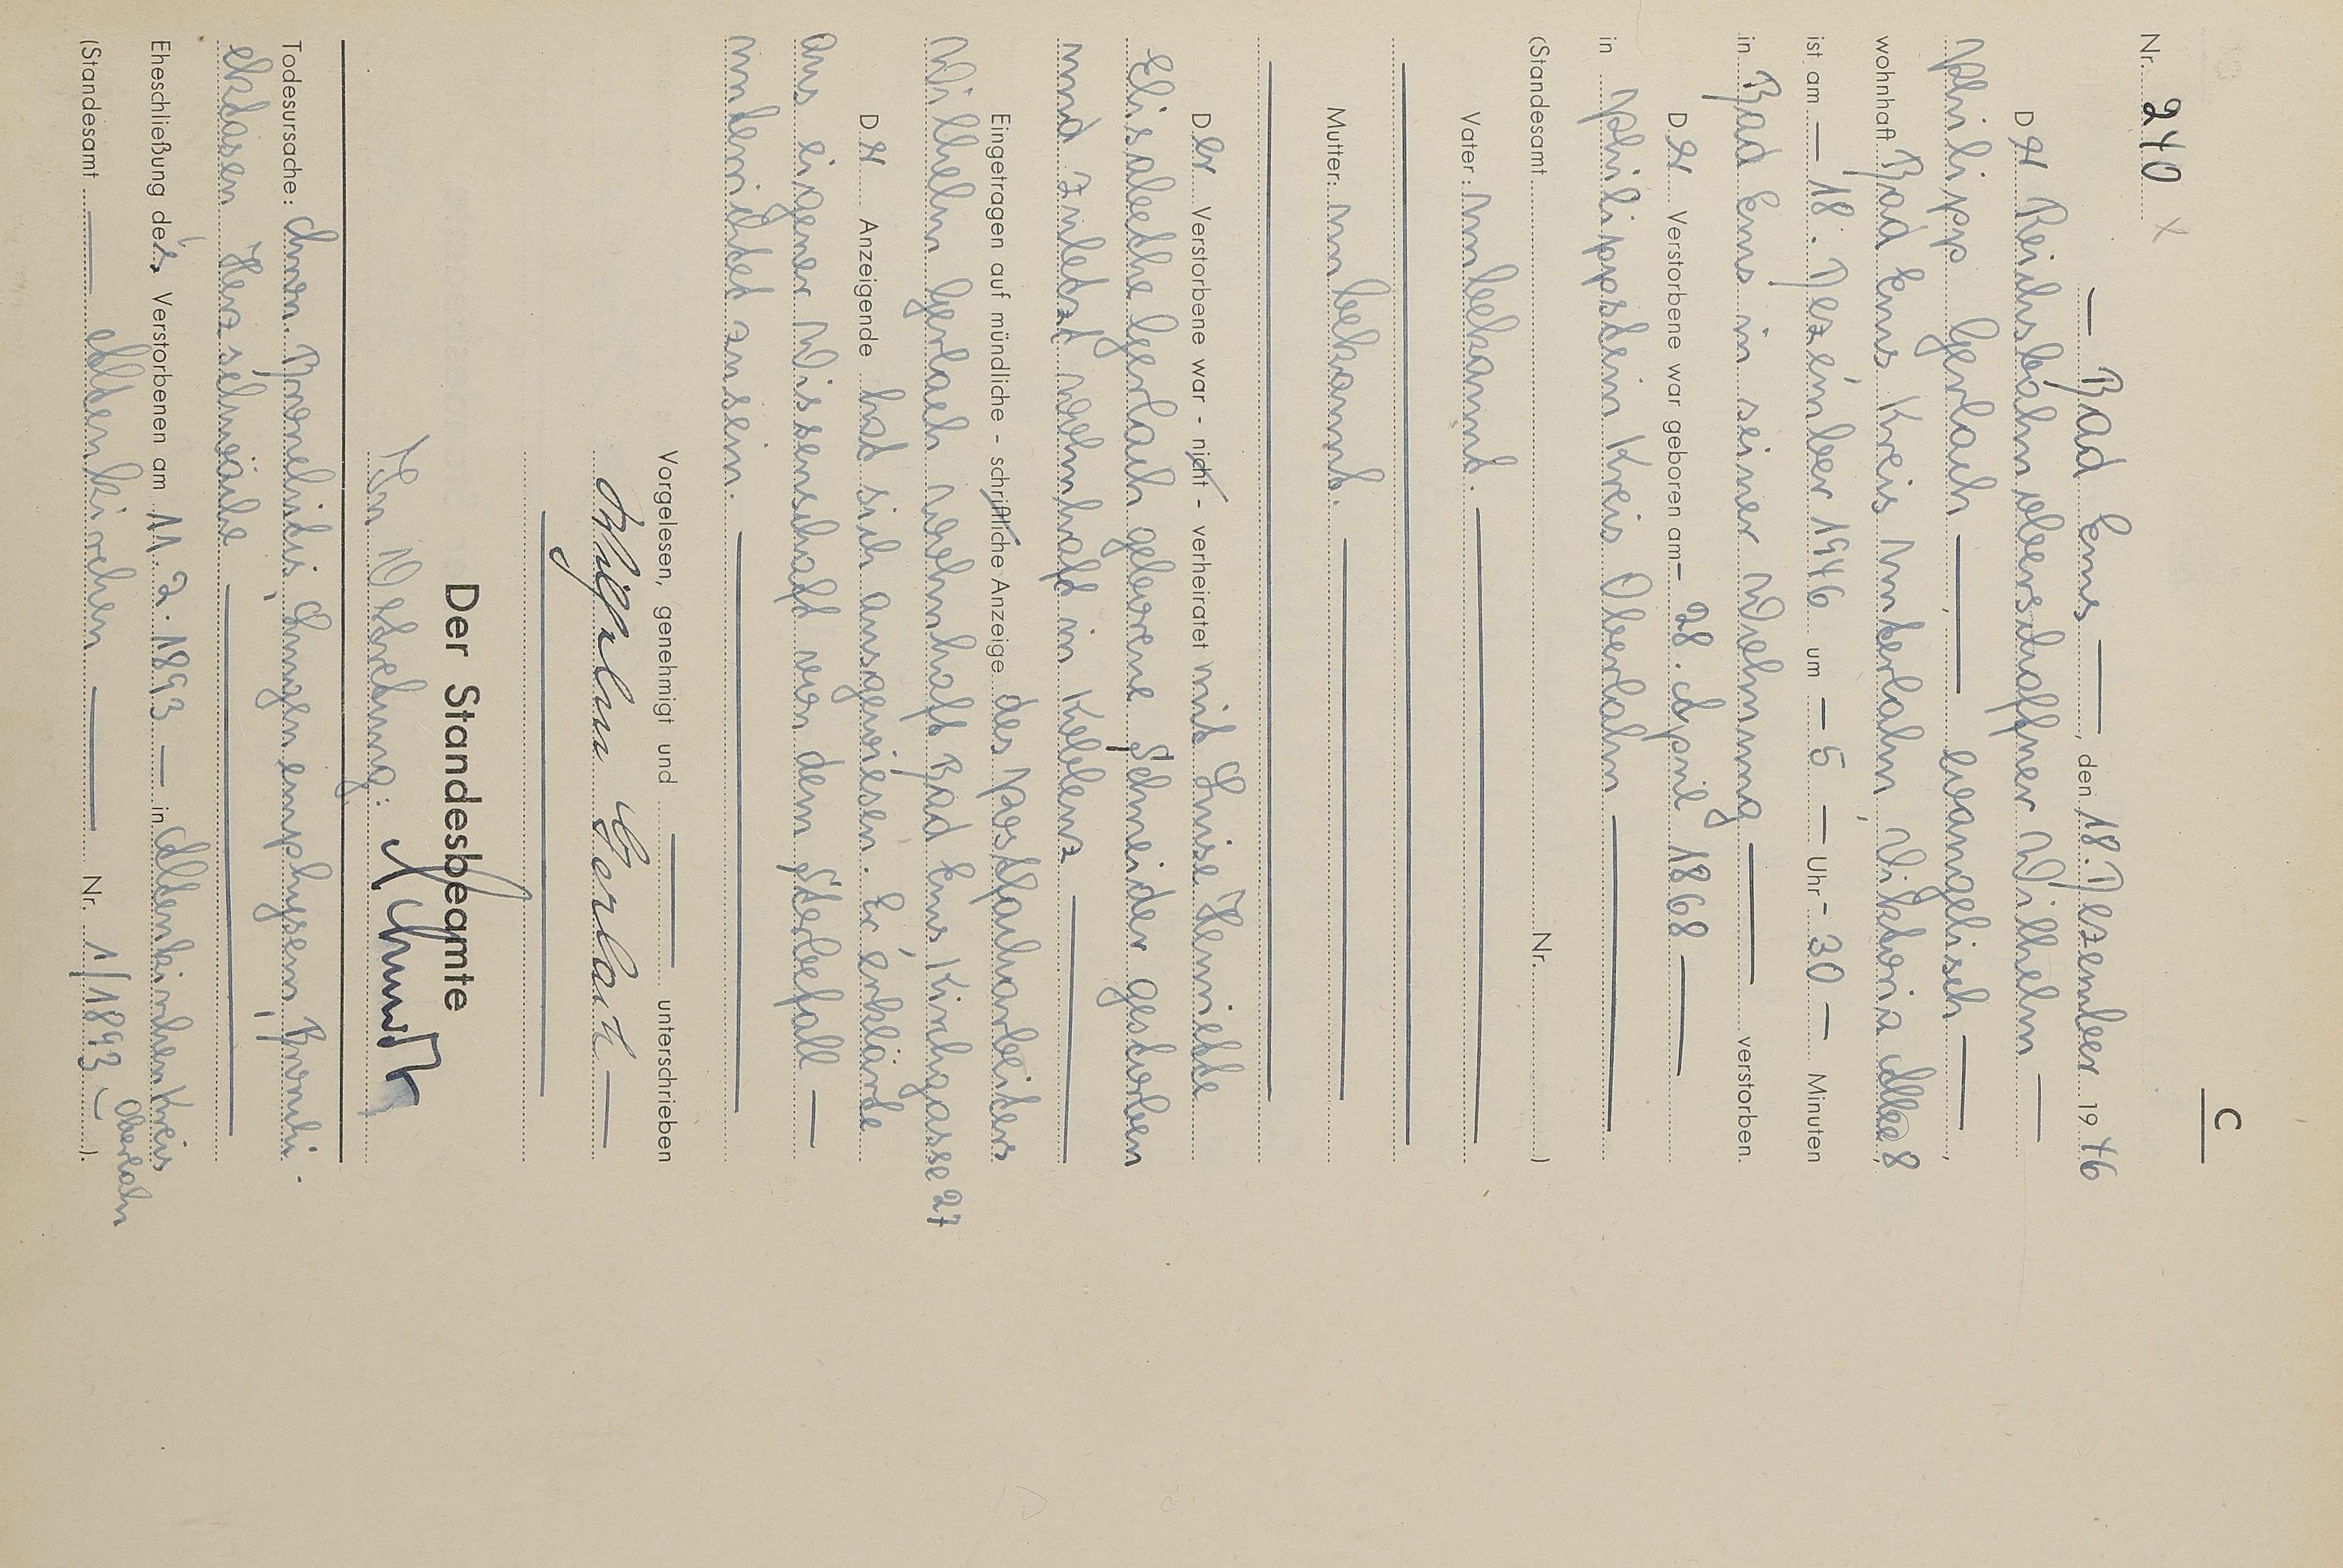 C
Nr. 240 x
— Bad Ems —, den 18. Dezember 1946
Der Reichsbahnoberschaffner Wilhelm —
Philipp Gerlach —, evangelisch —,
wohnhaft Bad Ems Kreis Unterlahn, Viktoria Allee 8,
ist am — 18. Dezember 1946 um — 5 — Uhr - 30 — Minuten
in Bad Ems in seiner Wohnung — verstorben.
Der Verstorbene war geboren am - 28. April 1868 —
in Philippstein Kreis Oberlahn —
(Standesamt Nr. )
Vater: unbekannt. —
Mutter: unbekannt. —
Der Verstorbene war - nicht - verheiratet mit Luise Henriette
Elisabethe Gerlach geborene Schneider gestorben
und zuletzt wohnhaft in Koblenz —
Eingetragen auf mündliche - schriftliche Anzeige des Postfacharbeiters
Wilhelm Gerlach wohnhaft Bad Ems, Kirchgasse 27
Der Anzeigende hat sich ausgewiesen. Er erklärte
aus eigener Wissenschaft von dem Sterbefall —
unterrichtet zu sein. —
Vorgelesen, genehmigt und — unterschrieben
Wilhelm Gerlach —
Der Standesbeamte
In Vertretung: Schmidt
Todesursache: Chron. Bronchitis, Lungenemphysem, Bronchi-
ektasen, Herzschwäche —
Eheschließung des Verstorbenen am 11. 2. 1893 — in Altenkirchen Kreis
Oberlahn
(Standesamt — Altenkirchen — Nr. 1/1893 —).